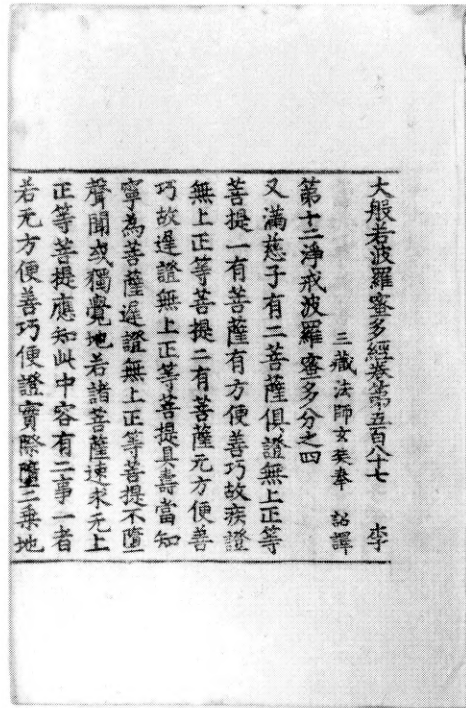 大般若波羅蜜多經卷第五百八七　李
三藏法師玄奘奉　詔譯
第十二淨戒波羅蜜多分之四
又滿慈子有二菩薩俱證無上正等
菩提一有菩薩有方便善巧故疾證
無上正等菩提二有菩薩无方便善
巧故遲證無上正等菩提具壽當知
寧為菩薩遲證無上正等菩提不墮
聲聞或獨覺地若諸菩薩速求无上
正等菩提應知此中容有二事一者
若无方便善巧便證實際墮二乗地